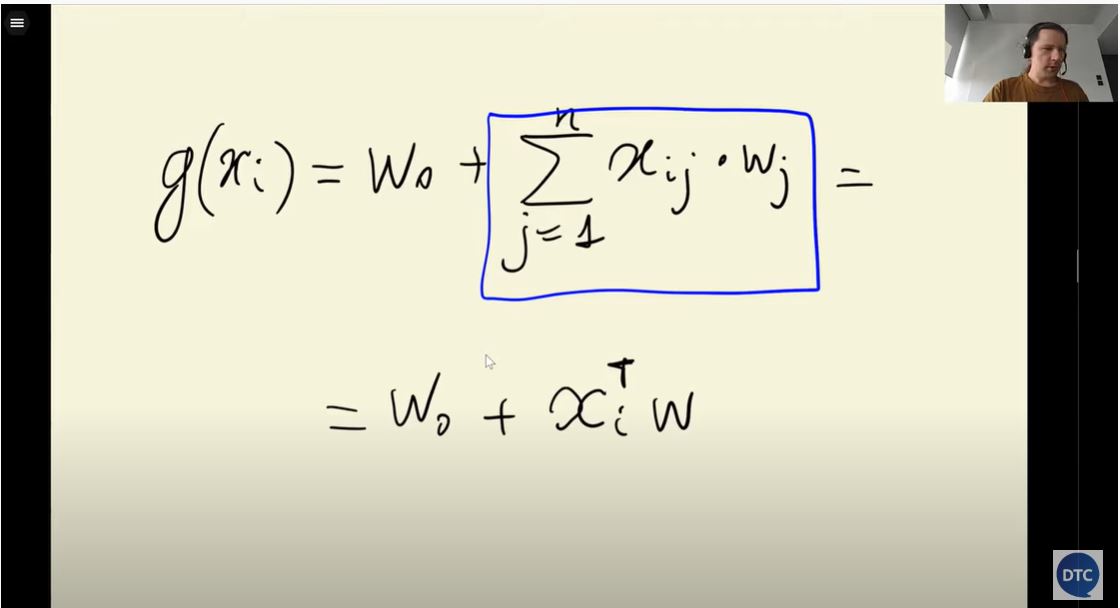 g(xᵢ) = w₀ + ∑ⁿⱼ₌₁ xᵢⱼ · wⱼ =
= w₀ + xᵢᵀ w
DTC